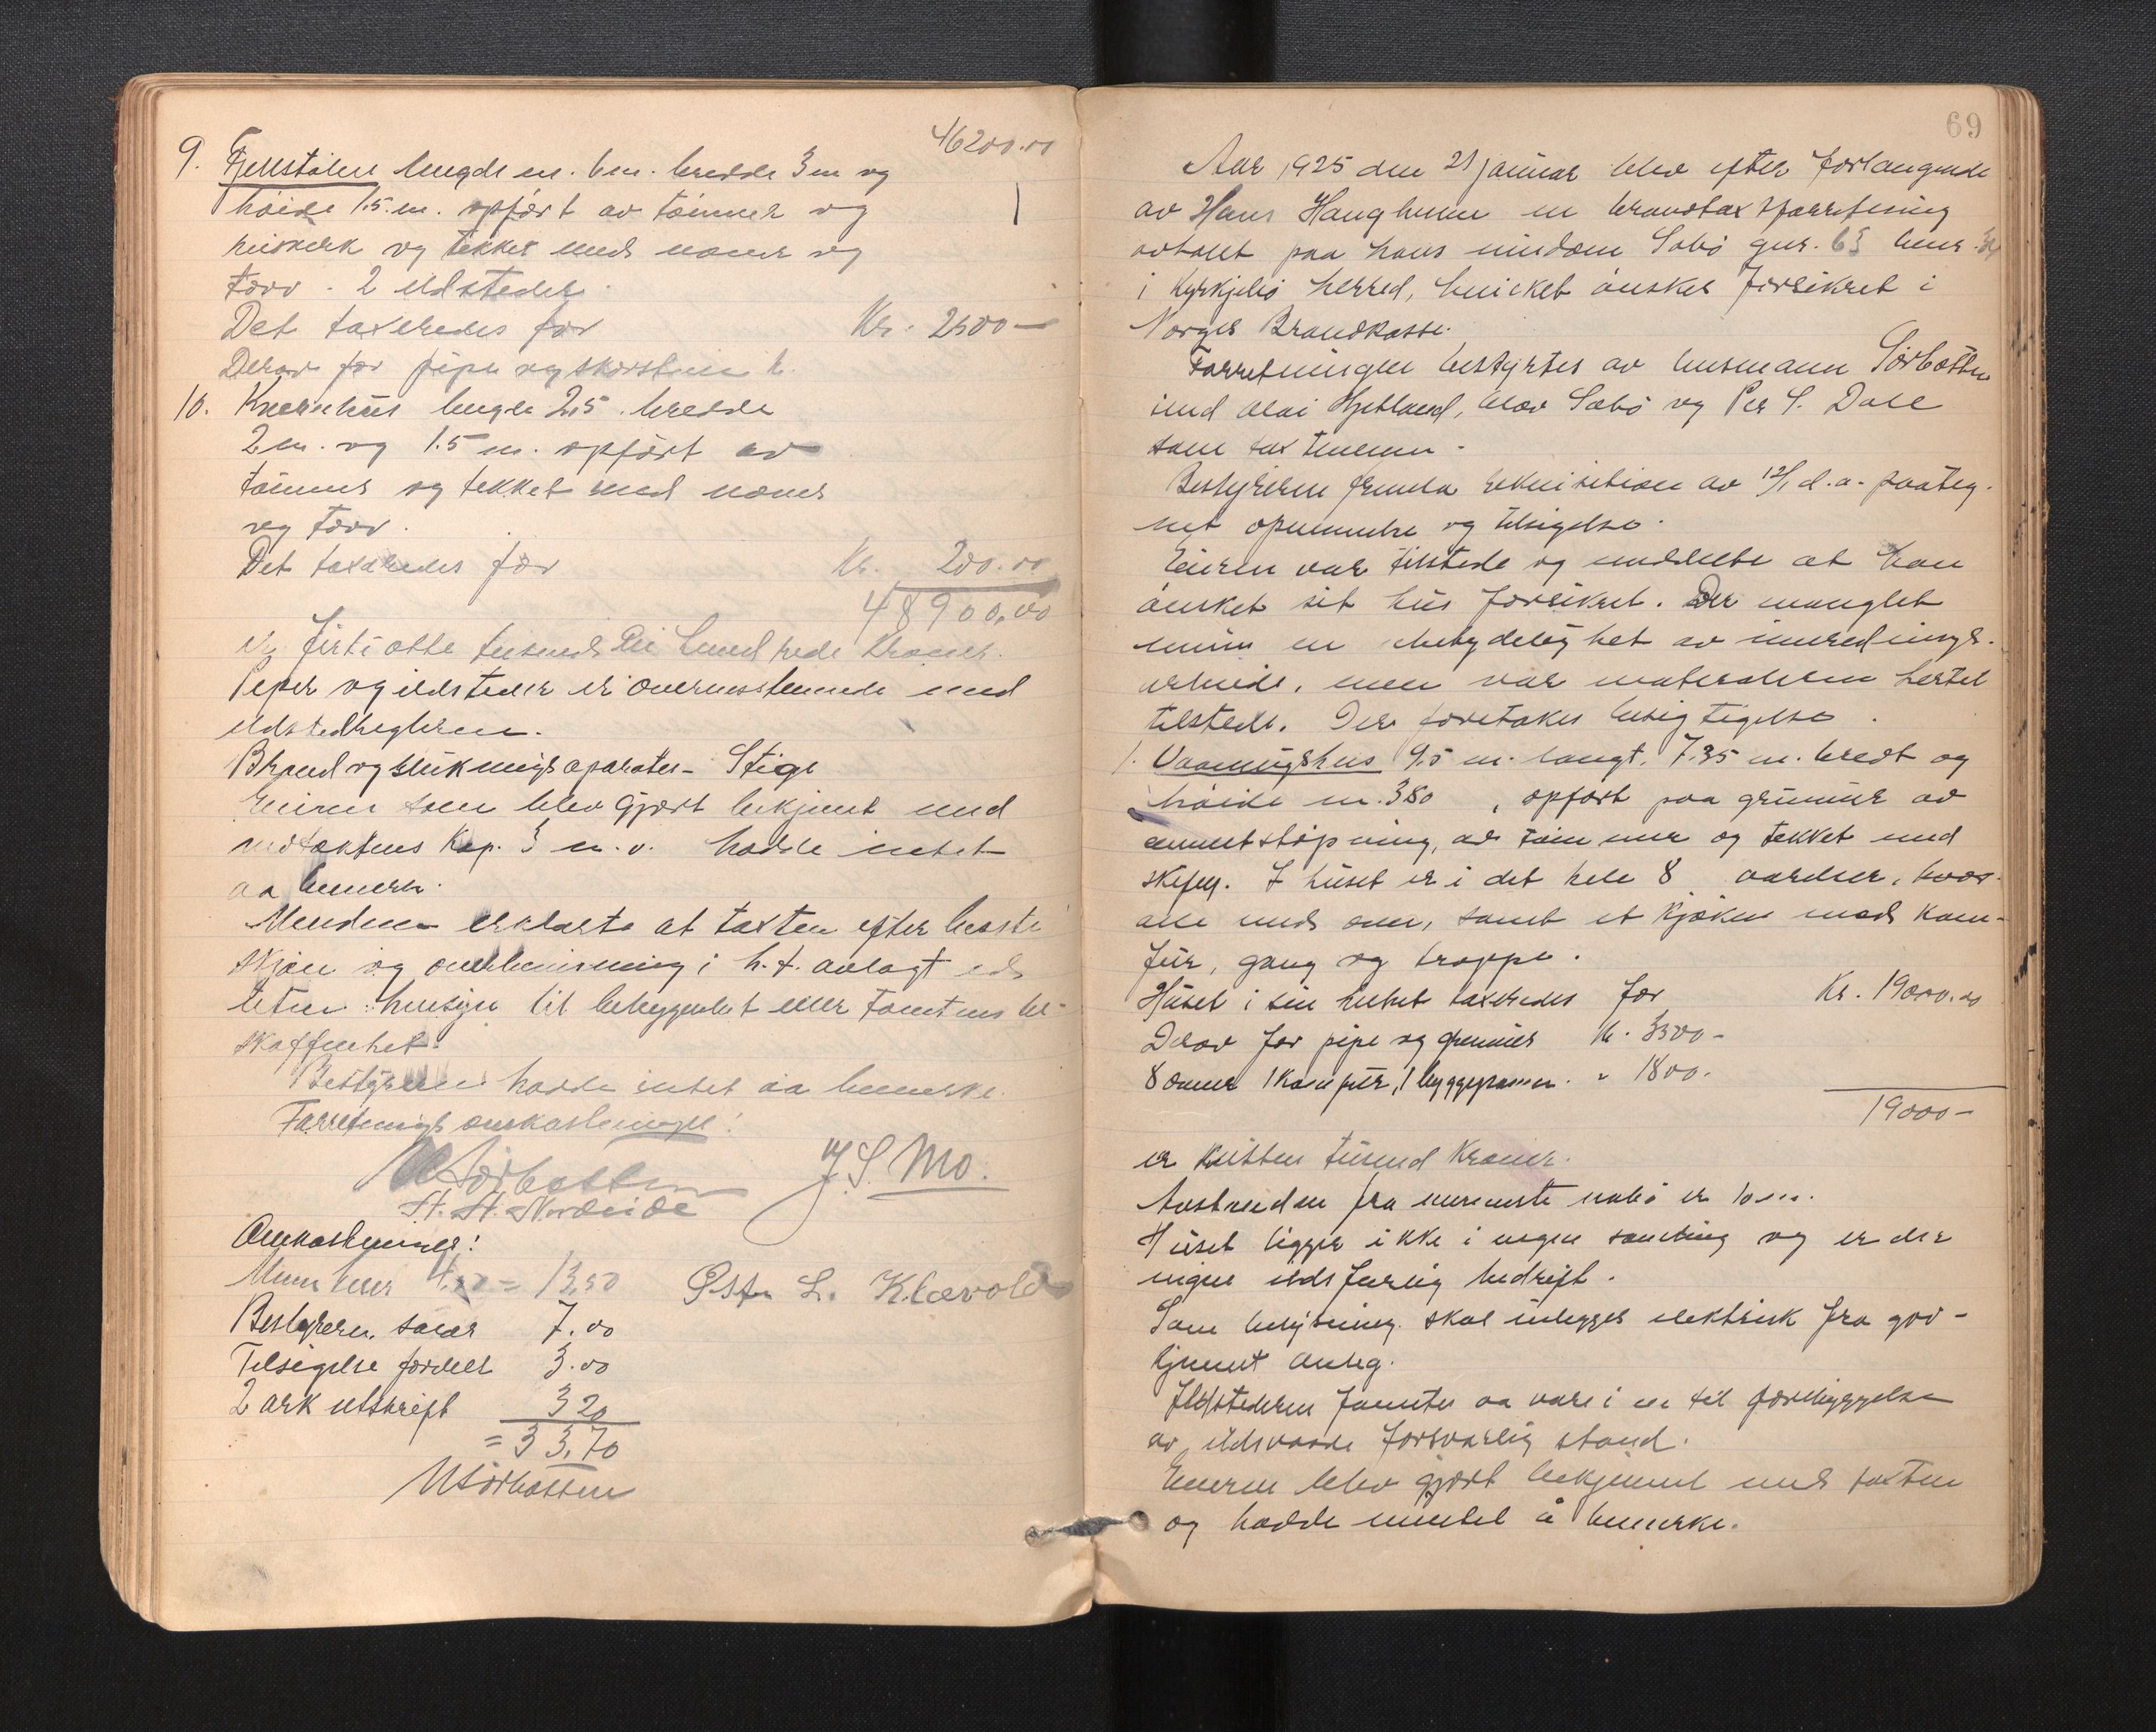 46200.00
9. Fjellstölen lengde m. 6 m. bredde 3 m og
höide 1.5. m. opfört av tömmer og
og tekket med never og
torv. 2 ildsteder.
Det taxeredes for Kr. 2500 —
Derav for pipe og skorstein k.
10. Kvernhus lengde 2,5. bredde
2 m. og 1.5 m. opfört av
tömmer og tekket med never
og torv.
Det taxeredes for Kr. 200.00
48900,00
er firti otte tusend ni hundrede kroner.
Piper og ildsteder er overensstemmende med
ildstedreglerne.
Brand og slukningsaparater - Stige
Eieren som blev gjort bekjent med
vedtektens Kap. 3 m. v. hadde intet
aa bemerke.
Mendene erklærte at taxten efter beste
skjön og overbevisning i h. t. avlagt ed
uten hensyn til beliggenhet eller tomtens be-
skaffenhet.
Bestyreren hadde intet aa bemerke.
Forretnings omkostninger!
M Sörbotten J. S. Mo.
H. H. Nordeide
Omkostninger:
4.50 = 13,50 L. Klævold
Bestyreren salær 7.00
Tilsigelse fordelt 3.00
2 ark utskrift 3 20
= 33,70
M Sörbotten
69
Aar 1925 den 21 januar blev efter forlangende
av Hans Haugheim en brandtaxtforretning
avholdt paa hans eiendom Sæbö gnr. 63 bnr.
i Kyrkjebö herred, hvilket önskes forsikret i
Norges Brandkasse.
Forretningen bestyrtes av lensmann Sörbotten
med Olai Hjetland, Olav Sæbö og Per S. Dale
som taxtmenn -
Bestyreren fremla rekvisition av 12/1 d. a. paateg-
net opnevnelse og tilsigelse.
Eieren var tilstede og meddelte at han
önsket sit hus forsikret. Der manglet
ennu en ubetydelighet av inrednings-
arbeide, men var materialerne hertil
tilstede. Der foretakes besigtigelse.
1. Vaaningshus 9.5 m. langt, 7.35 m. bredt og
höide m. 3.80, opfört paa grunnur av
cementstöpning, av tömmer og tekket med
skifer. I huset er i det hele 8 værelser, hvor-
alle med ovn, samt et kjöken med kom-
fur, gang og trappe.
Huset i sin helhet taxeredes for Kr. 19000.00
Derav for pipe og grunmur Kr. 3500 -
8 ovner 1 komfur, 1 byggepanne. " 1800.
19000 -
er nitten tusend Kroner.
Avstanden fra nermeste nabo er 10 m.
Huset ligger ikke i nogen samling og er der
ingen ildsfarlig bedrift.
Som belysning skal inlegges elektrisk fra god-
kjennt anleg.
Ildstederne fanntes aa være i en til forebyggelse
av ildsvaade forsvarlig stand.
Eieren blev gjort bekjennt med taxten
og hadde inntet å bemerke.